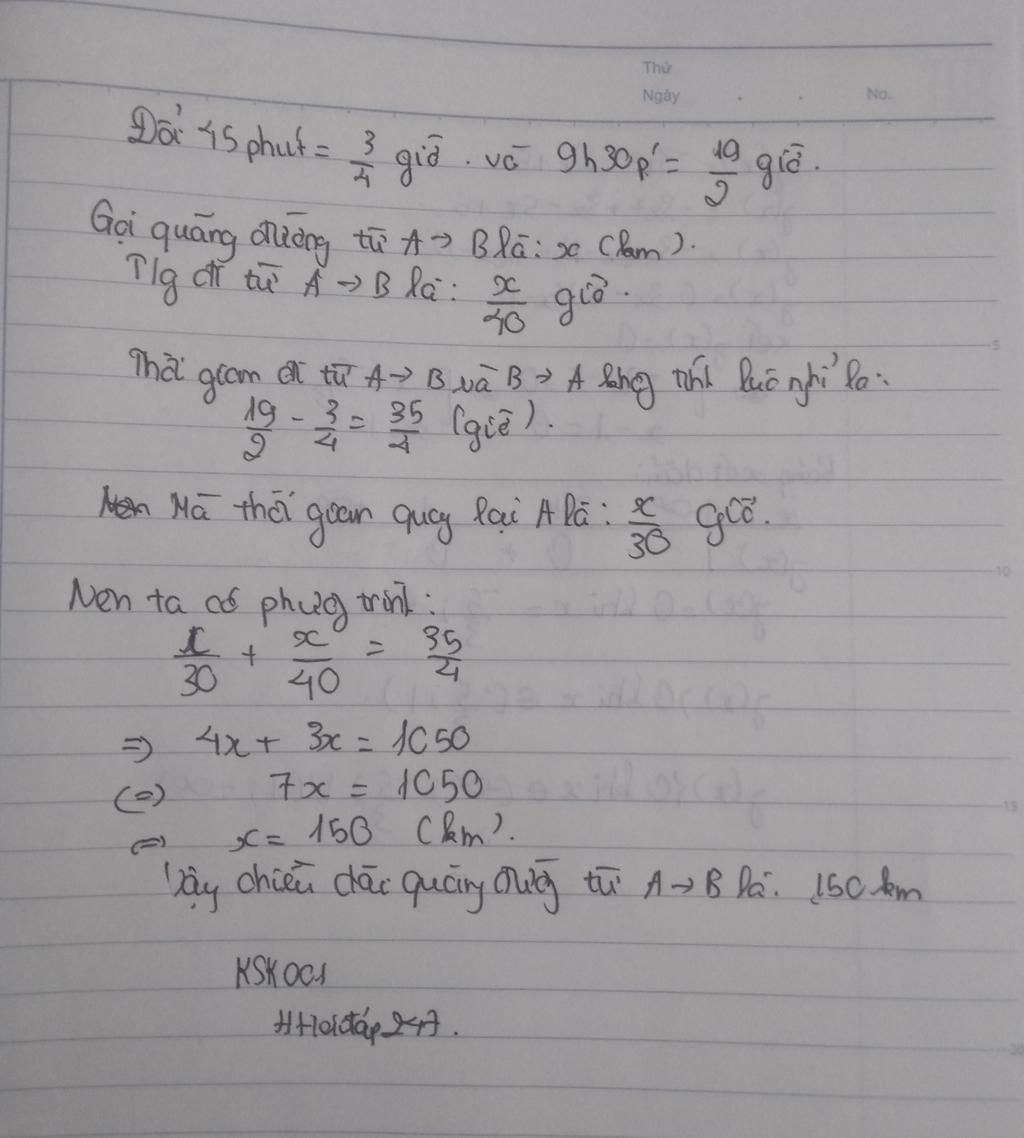 Thứ
Ngày . . No.
Đổi 45 phút = 3/4 giờ. và 9h30p' = 19/2 giờ.
Gọi quãng đường từ A → B là: x (km).
T/g đi từ A → B là: x/40 giờ.
5
Thời gian đi từ A → B và B → A không tính lúc nghỉ là:
19/2 - 3/4 = 35/4 (giờ).
Mà thời gian quay lại A là: x/30 giờ.
10
Nên ta có phương trình:
x/30 + x/40 = 35/4
⇒ 4x + 3x = 1050
(=) 7x = 1050
15
(=) x = 150 (km).
Vậy chiều dài quãng đường từ A → B là. 150 km
KSK001
#Hoidap247.
20